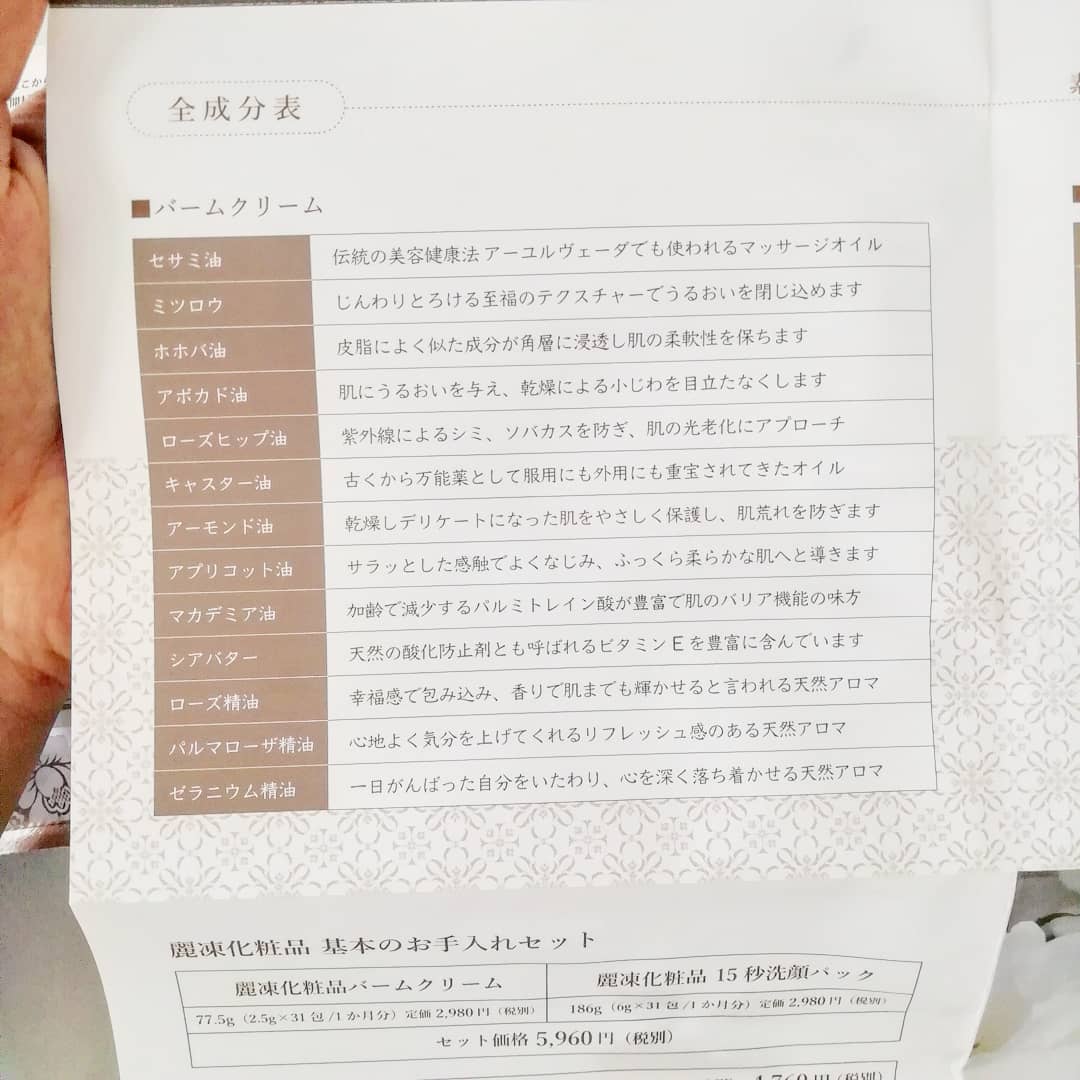 全成分表
■バームクリーム
セサミ油 伝統の美容健康法 アーユルヴェーダでも使われるマッサージオイル
ミツロウ じんわりとろける至福のテクスチャーでうるおいを閉じ込めます
ホホバ油 皮脂によく似た成分が角層に浸透し肌の柔軟性を保ちます
アボカド油 肌にうるおいを与え、乾燥による小じわを目立たなくします
ローズヒップ油 紫外線によるシミ、ソバカスを防ぎ、肌の光老化にアプローチ
キャスター油 古くから万能薬として服用にも外用にも重宝されてきたオイル
アーモンド油 乾燥しデリケートになった肌をやさしく保護し、肌荒れを防ぎます
アプリコット油 サラッとした感触でよくなじみ、ふっくら柔らかな肌へと導きます
マカデミア油 加齢で減少するパルミトレイン酸が豊富で肌のバリア機能の味方
シアバター 天然の酸化防止剤とも呼ばれるビタミンEを豊富に含んでいます
ローズ精油 幸福感で包み込み、香りで肌までも輝かせると言われる天然アロマ
パルマローザ精油 心地よく気分を上げてくれるリフレッシュ感のある天然アロマ
ゼラニウム精油 一日がんばった自分をいたわり、心を深く落ち着かせる天然アロマ
麗凍化粧品 基本のお手入れセット
麗凍化粧品バームクリーム 麗凍化粧品 15秒洗顔パック
77.5g（2.5g×31包/1か月分）定価2,980円（税別） 186g（6g×31包/1か月分）定価2,980円（税別）
セット価格 5,960円（税別）
4,760円（税別）